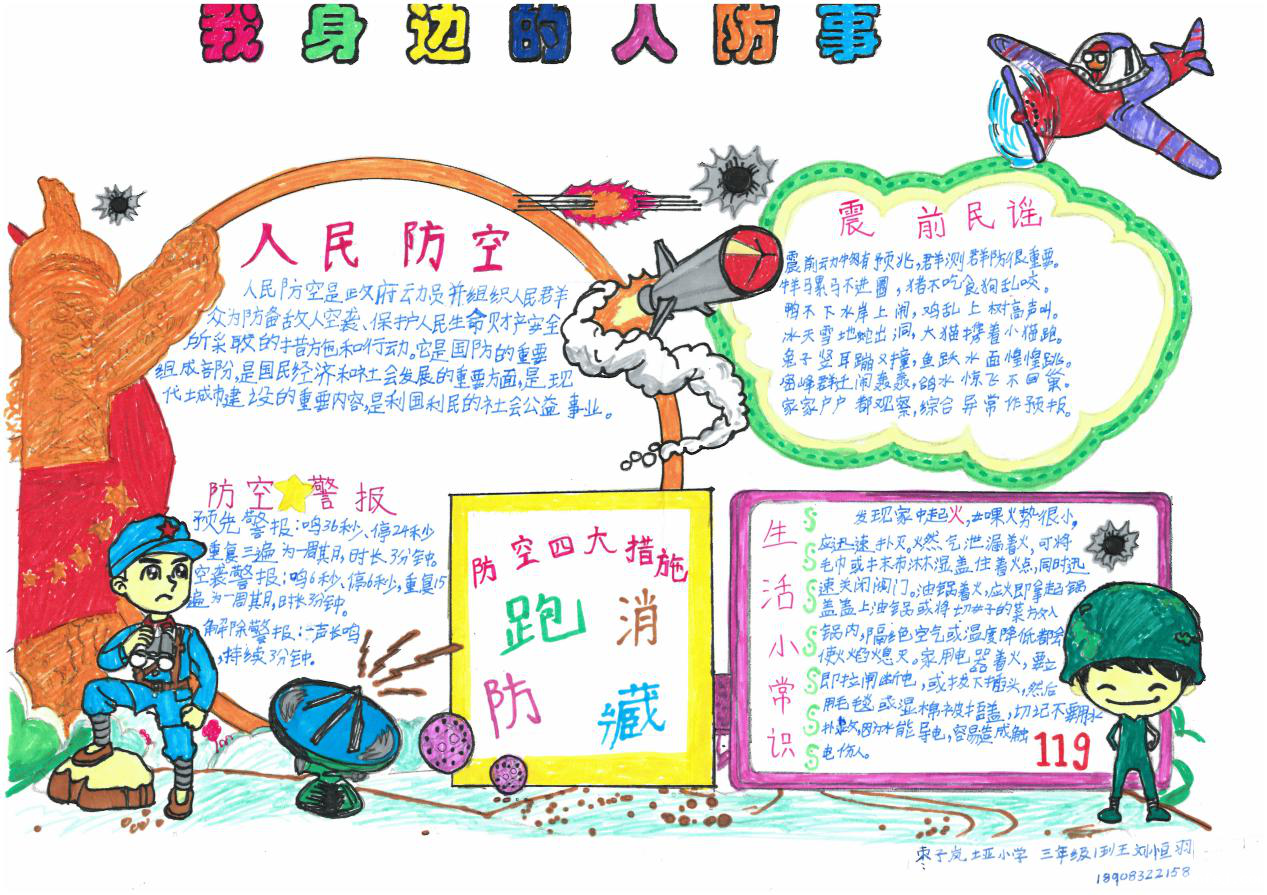 我身边的人防事
人民防空
人民防空是政府动员并组织人民群
众为防备敌人空袭、保护人民生命财产安全
所采取的措施和行动。它是国防的重要
组成部份,是国民经济和社会发展的重要方面,是现
代土城市建设的重要内容,是利国利民的社会公益事业。
震前民谣
震前动物有预兆,群测群防很重要。
牛羊骡马不进圈,猪不吃食狗乱咬。
鸭不下水岸上闹,鸡乱上树高声叫。
冰天雪地蛇出洞,大猫携着小猫跑。
兔子竖耳蹦又撞,鱼跃水面惶惶跳。
蜜蜂群迁闹轰轰,鸽子惊飞不回巢。
家家户户都观察,综合异常作预报。
防空警报
预先警报:鸣36秒、停24秒
重复三遍为一周期,时长3分钟。
空袭警报:鸣6秒、停6秒,重复15
遍为一周期,时长3分钟。
解除警报:一声长鸣
,持续3分钟。
防空四大措施
跑 消
防 藏
生活小常识
发现家中起火,如果火势很小,
应迅速扑灭。燃气泄漏着火,可将
毛巾或抹布沐湿盖住着火点,同时迅
速关闭阀门。油锅着火,应火即拿起锅
盖盖上油锅或将切好的菜放入
锅内,隔绝空气或温度降低都会
使火焰熄灭。家用电器着火,要立
即拉闸断电,或拔下插头,然后
用毛毯或湿棉被捂盖,切记不要用水
扑救,因为水能导电,容易造成触
电伤人。
119
枣子岚垭小学 三年级1班王刘恒羽
18908322158